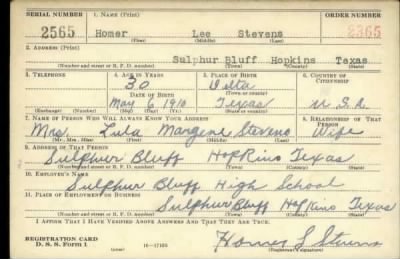 SERIAL NUMBER 1. NAME (Print) ORDER NUMBER
2565 Homer Lee Stevens 2365
(First) (Middle) (Last)
2. ADDRESS (Print)
Sulphur Bluff Hopkins Texas
(Number and street or R. F. D. number) (Town) (County) (State)
3. TELEPHONE 4. AGE IN YEARS 5. PLACE OF BIRTH 6. COUNTRY OF CITIZENSHIP
30 Delta
DATE OF BIRTH (Town or county)
May 6 1910 Texas U.S.A.
(Exchange) (Number) (Mo.) (Day) (Yr.) (State or country)
7. NAME OF PERSON WHO WILL ALWAYS KNOW YOUR ADDRESS 8. RELATIONSHIP OF THAT PERSON
Mrs. Lula Margene Stevens Wife
(Mr., Mrs., Miss) (First) (Middle) (Last)
9. ADDRESS OF THAT PERSON
Sulphur Bluff Hopkins Texas
(Number and street or R. F. D. number) (Town) (County) (State)
10. EMPLOYER'S NAME
Sulphur Bluff High School
11. PLACE OF EMPLOYMENT OR BUSINESS
Sulphur Bluff Hopkins Texas
(Number and street or R. F. D. number) (Town) (County) (State)
I AFFIRM THAT I HAVE VERIFIED ABOVE ANSWERS AND THAT THEY ARE TRUE.
REGISTRATION CARD
D. S. S. Form 1 (over) 16—17105 Homer L Stevens
(Registrant's signature)